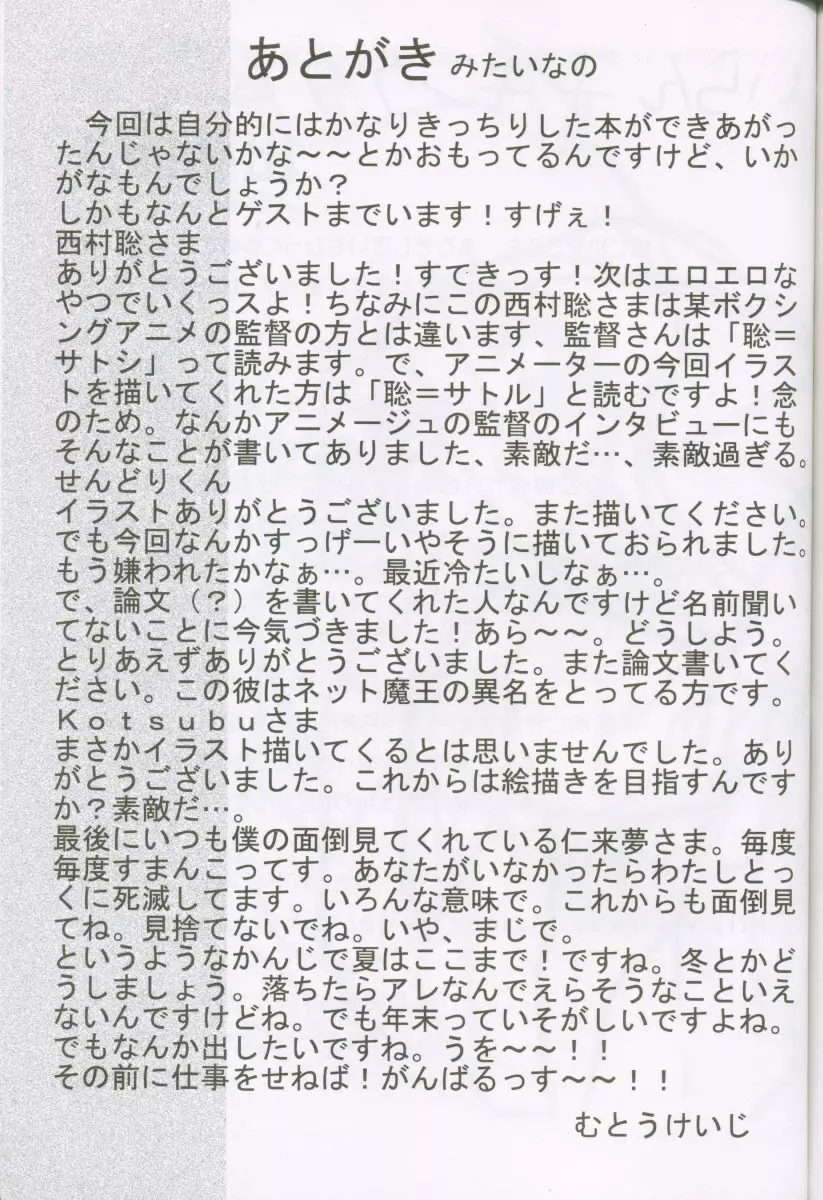 あとがき みたいなの
　今回は自分的にはかなりきっちりした本ができあがっ
たんじゃないかな～～とかおもってるんですけど、いか
がなもんでしょうか？
しかもなんとゲストまでいます！すげぇ！
西村聡さま
ありがとうございました！すてきっす！次はエロエロな
やつでいくっスよ！ちなみにこの西村聡さまは某ボクシ
ングアニメの監督の方とは違います、監督さんは「聡＝
サトシ」って読みます。で、アニメーターの今回イラス
トを描いてくれた方は「聡＝サトル」と読むですよ！念
のため。なんかアニメージュの監督のインタビューにも
そんなことが書いてありました、素敵だ…、素敵過ぎる。
せんどりくん
イラストありがとうございました。また描いてください。
でも今回なんかすっげーいやそうに描いておられました。
もう嫌われたかなぁ…。最近冷たいしなぁ…。
で、論文（？）を書いてくれた人なんですけど名前聞い
てないことに今気づきました！あら～～。どうしよう。
とりあえずありがとうございました。また論文書いてく
ださい。この彼はネット魔王の異名をとってる方です。
Ｋｏｔｓｕｂｕさま
まさかイラスト描いてくるとは思いませんでした。あり
がとうございました。これからは絵描きを目指すんです
か？素敵だ…。
最後にいつも僕の面倒見てくれている仁来夢さま。毎度
毎度すまんこってす。あなたがいなかったらわたしとっ
くに死滅してます。いろんな意味で。これからも面倒見
てね。見捨てないでね。いや、まじで。
というようなかんじで夏はここまで！ですね。冬とかど
うしましょう。落ちたらアレなんでえらそうなこといえ
ないんですけどね。でも年末っていそがしいですよね。
でもなんか出したいですね。うを～～！！
その前に仕事をせねば！がんばるっす～～！！
むとうけいじ